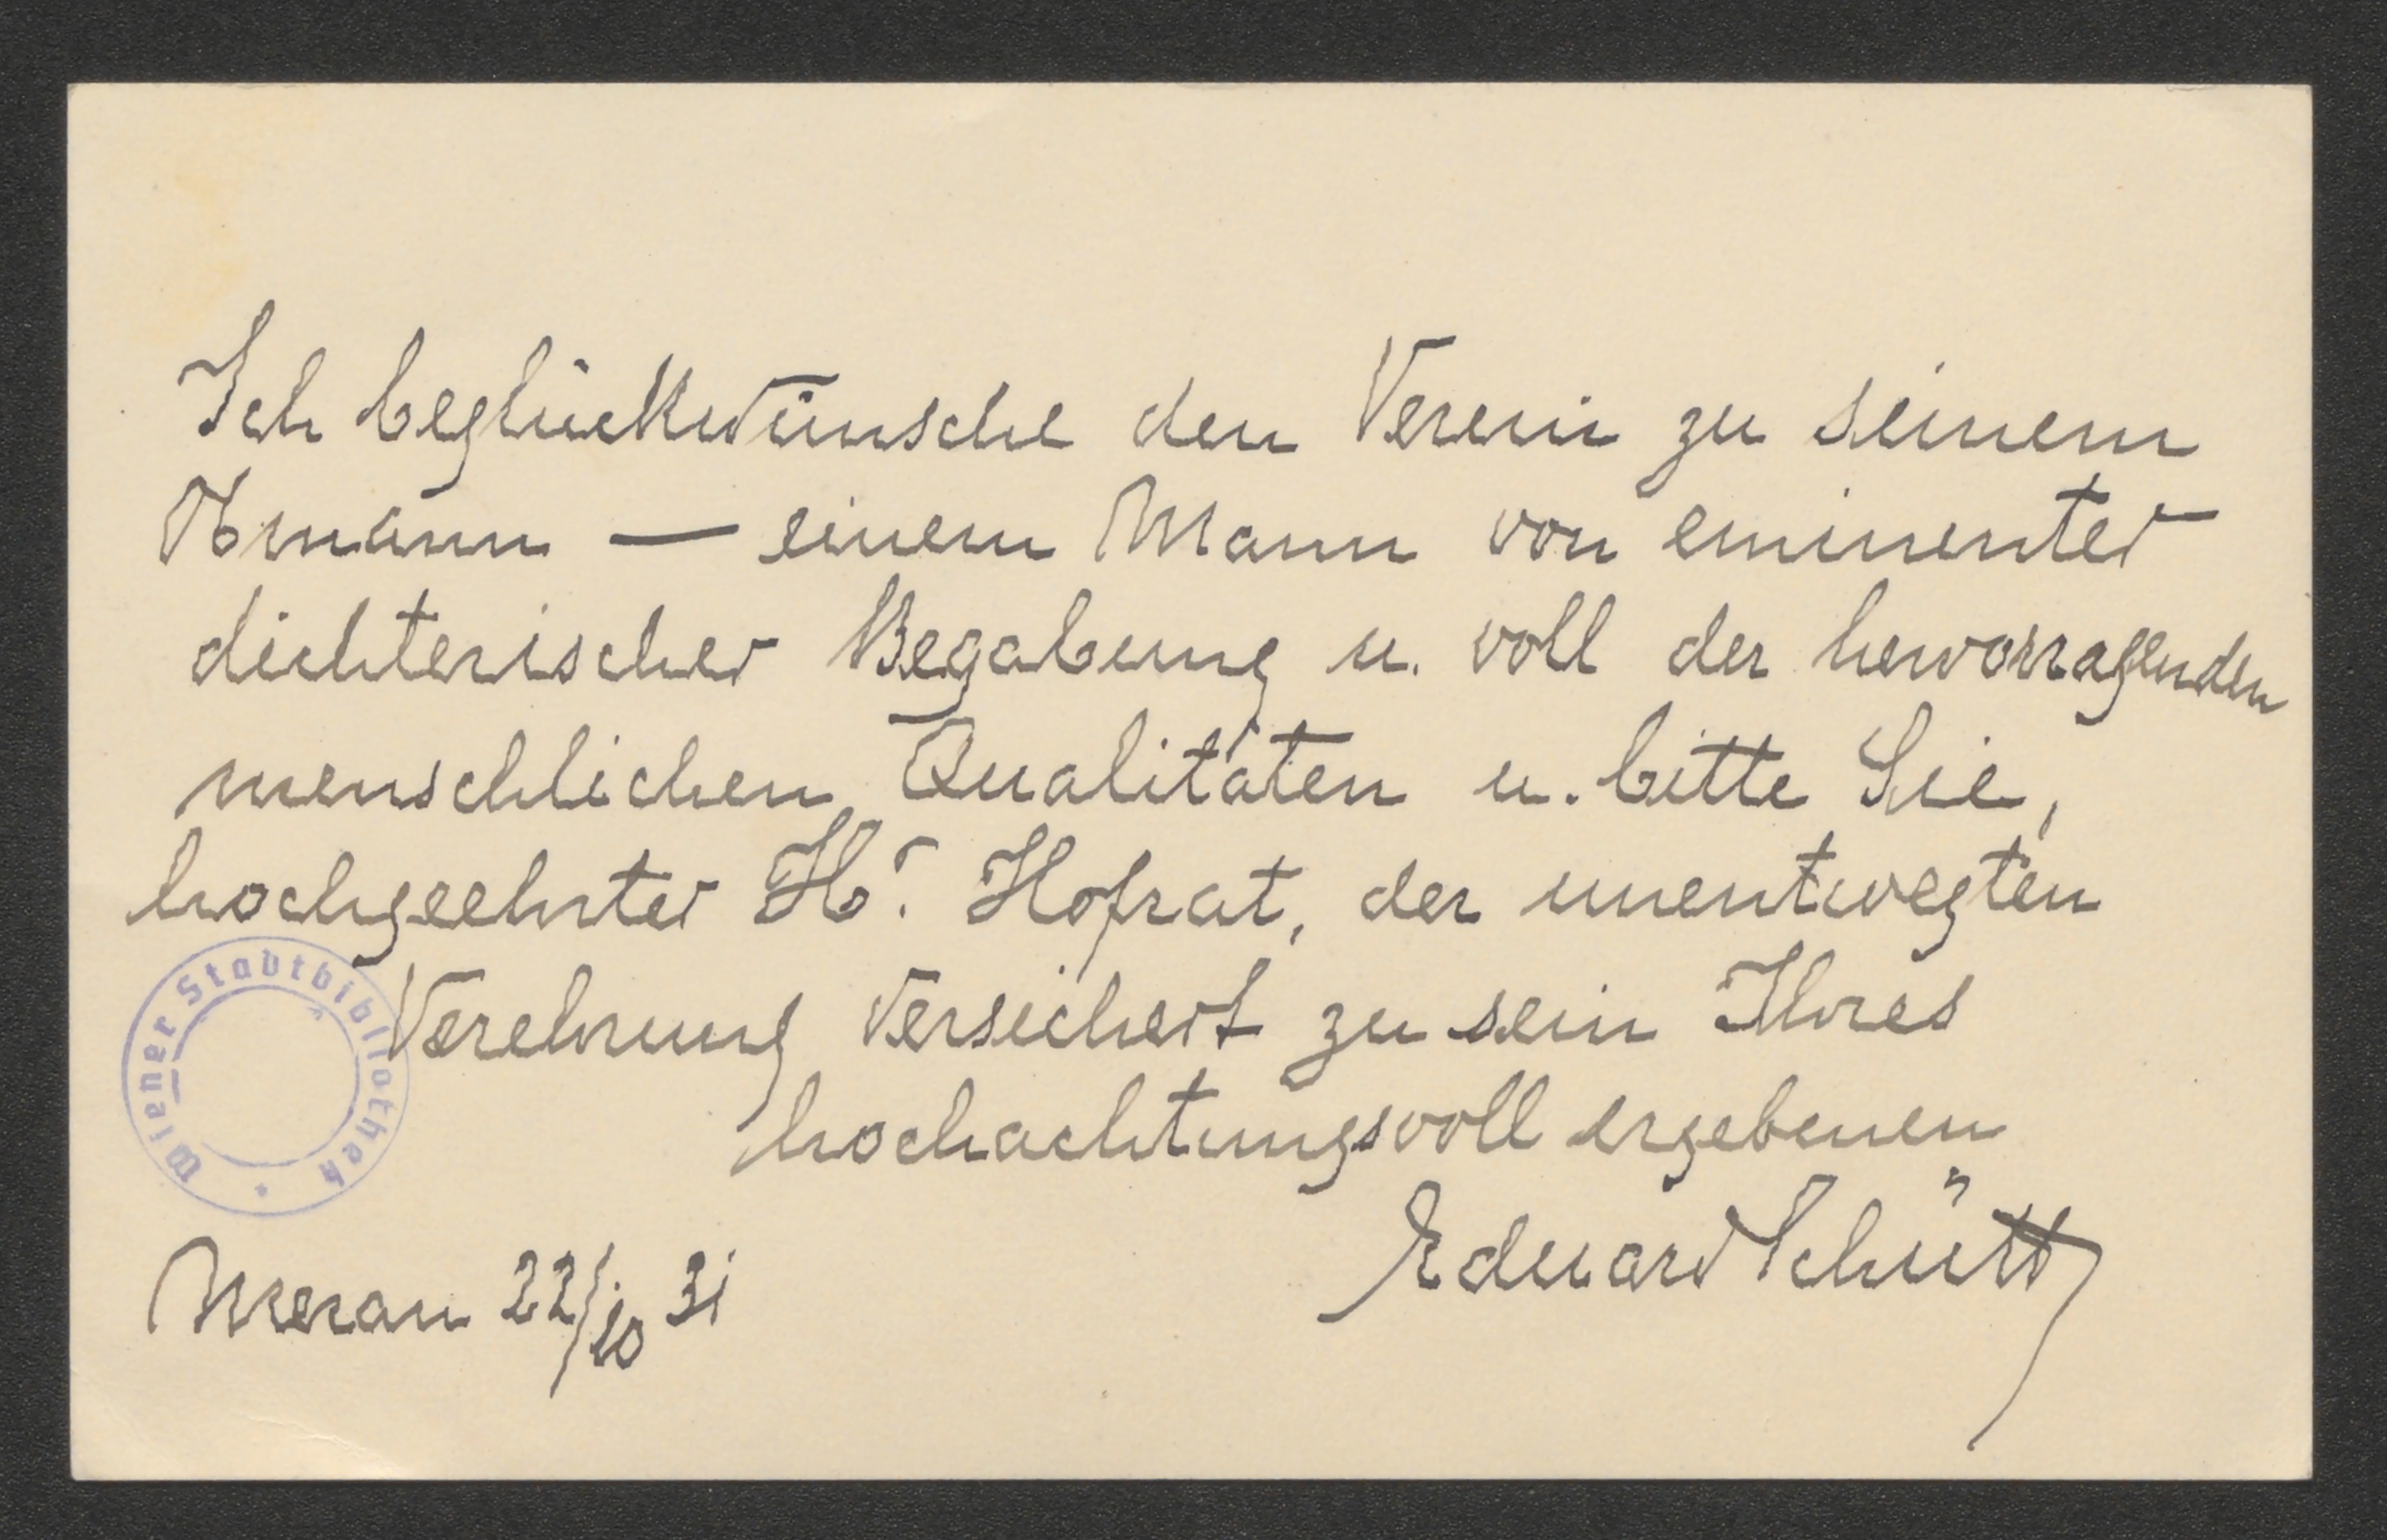 Ich beglückwünsche den Verein zu seinem
Obmann — einem Mann von eminenter
dichterischer Begabung u. voll der hervorragenden
menschlichen Qualitäten u. bitte Sie,
hochgeehrter Hr. Hofrat, der unentwegten
Verehrung versichert zu sein Ihres
hochachtungsvoll ergebenen
Eduard Schütt
Meran 22/10 31
Wiener Stadtbibliothek